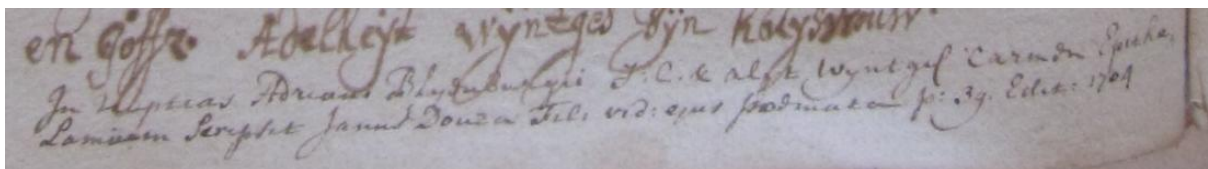 en Joffr. Adelheijt Wijntges Sijn Huijsvrouw.
In nuptias Adriani Blyenburgii J. C. & Alst Wyntges Carmen Epitha,
Lamium Scripsit Janus Douza Fil: vid: ejus poëmata p: 39. Edit: 1704